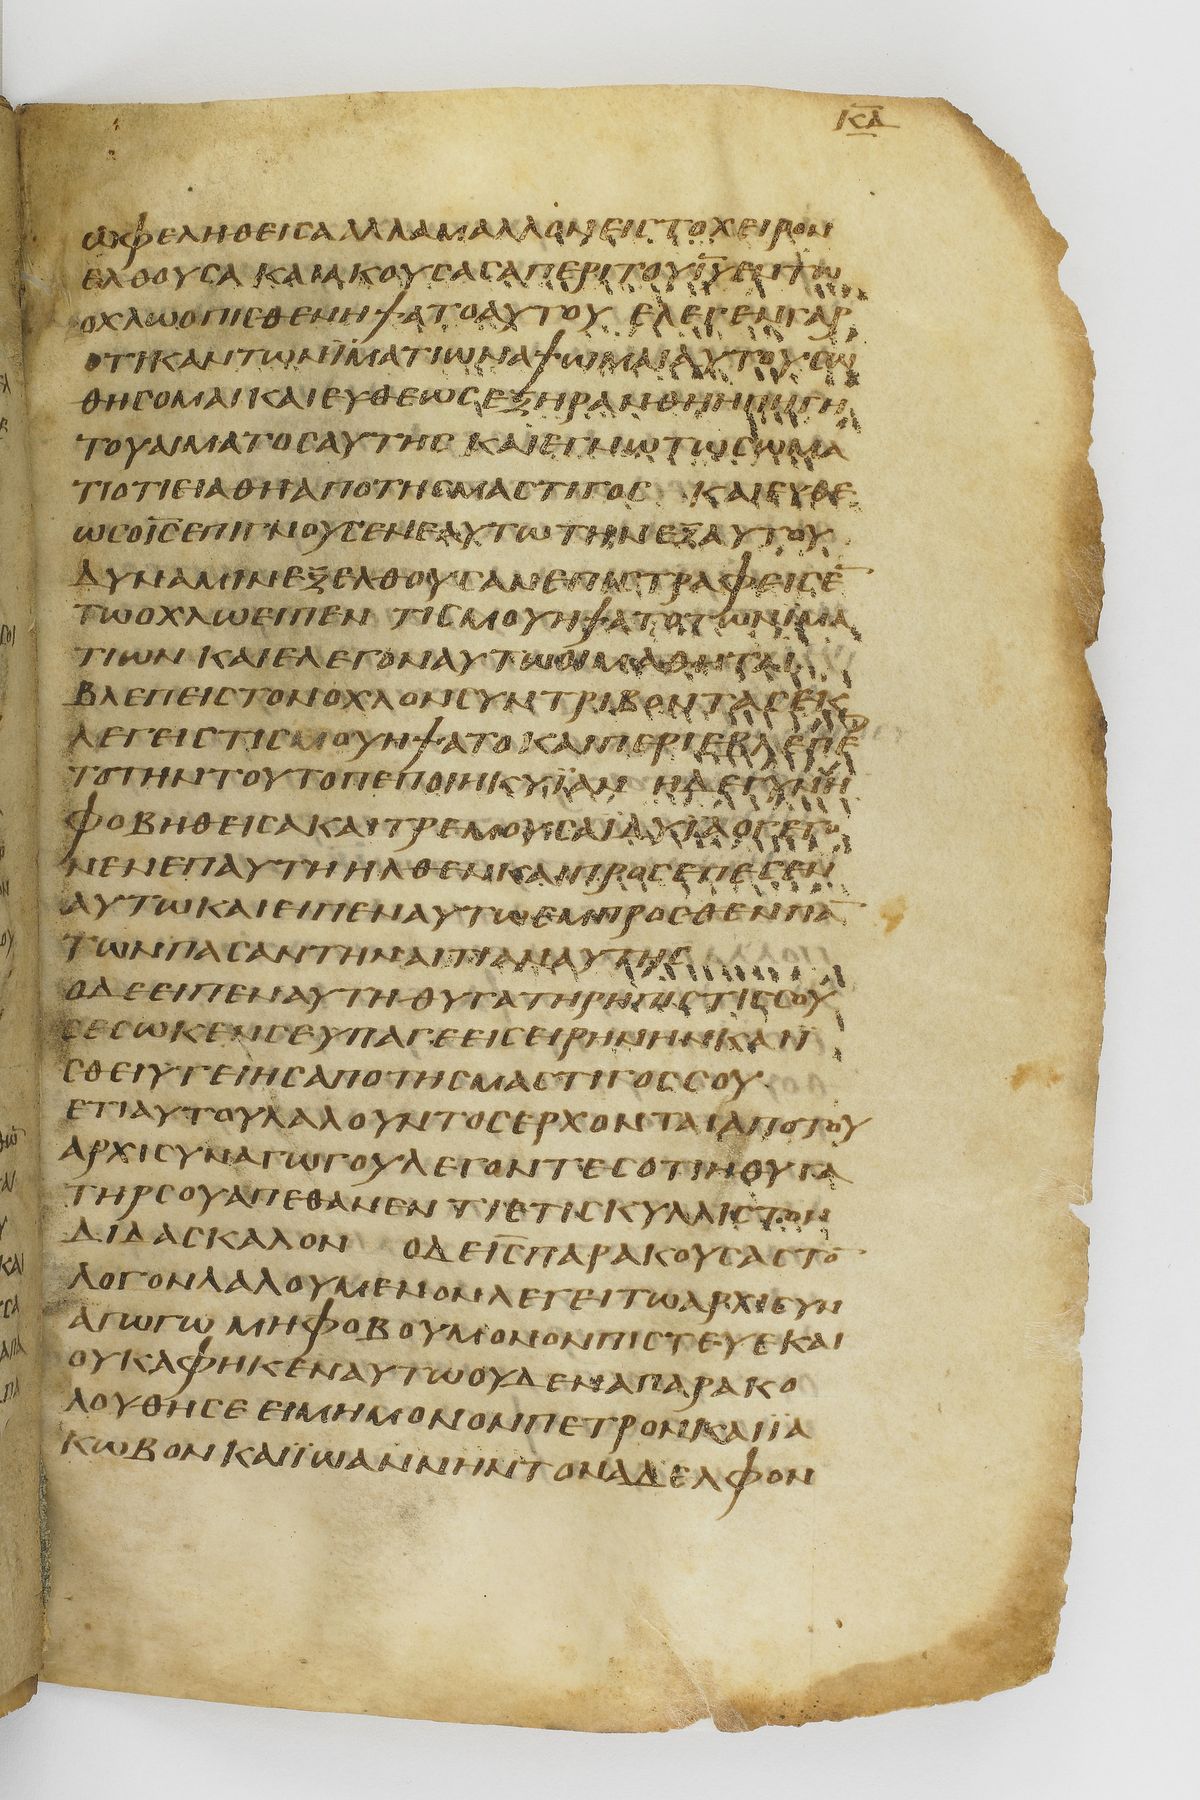 ΚΑ
ωφεληθεισα αλλα μαλλον εις το χειρον
ελθουσα και ακουσασα περι του ιυ εν τω
οχλω οπισθεν ηψατο αυτου ελεγεν γαρ
οτι καν των ϊματιων αψωμαι αυτου σω
θησομαι και ευθεως εξηρανθη η πηγη
του αιματος αυτης και εγνω τω σωμα
τι οτι ειαθη απο της μαστιγος και ευθε
ως ο ις επιγνους εν εαυτω την εξ αυτου
δυναμιν εξελθουσαν επιστραφεις ε̄
τω οχλω ειπεν τις μου ηψατο των ιμα
τιων και ελεγον αυτω οι μαθηται
βλεπεις τον οχλον συντριβοντα σε και
λεγεις τις μου ηψατο και περιεβλεπε
το την τουτο πεποιηκυϊαν η δε γυνη
φοβηθεισα και τρεμουσα δια ο γεγο
νεν επ αυτη ηλθεν και προσεπεσεν
αυτω και ειπεν αυτω εμπροσθεν πᾱ
των πασαν την αιτιαν αυτης
ο δε ειπεν αυτη θυγατηρ η πιστις σου
σεσωκεν σε υπαγε εις ειρηνην και ϊ
σθει υγειης απο της μαστιγος σου
ετι αυτου λαλουντος ερχονται απο του
αρχισυναγωγου λεγοντες οτι η θυγα
τηρ σου απεθανεν τι ετι σκυλλις τον
διδασκαλον ο δε ις παρακουσας το̄
λογον λαλουμενον λεγει τω αρχισυν
αγωγω μη φοβου μονον πιστευε και
ουκ αφηκεν αυτω ουδενα παρακο
λουθησε ει μη μονον πετρον και ϊα
κωβον και ϊωαννην τον αδελφον